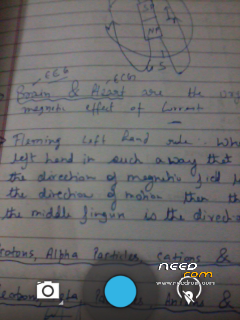 S P
N P
S
EEG ECG
Brain & Heart are the org
magnetic effect of current
Fleming Left hand rule. Wh
left hand in such a way that
the direction of magnetic field
the direction of motion then th
the middle fingure is the direct
rotons, Alpha Particles, cations &
NEED
.com
www.needrom.com